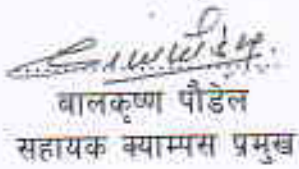 बालकृष्ण पौडेल
सहायक क्याम्पस प्रमुख